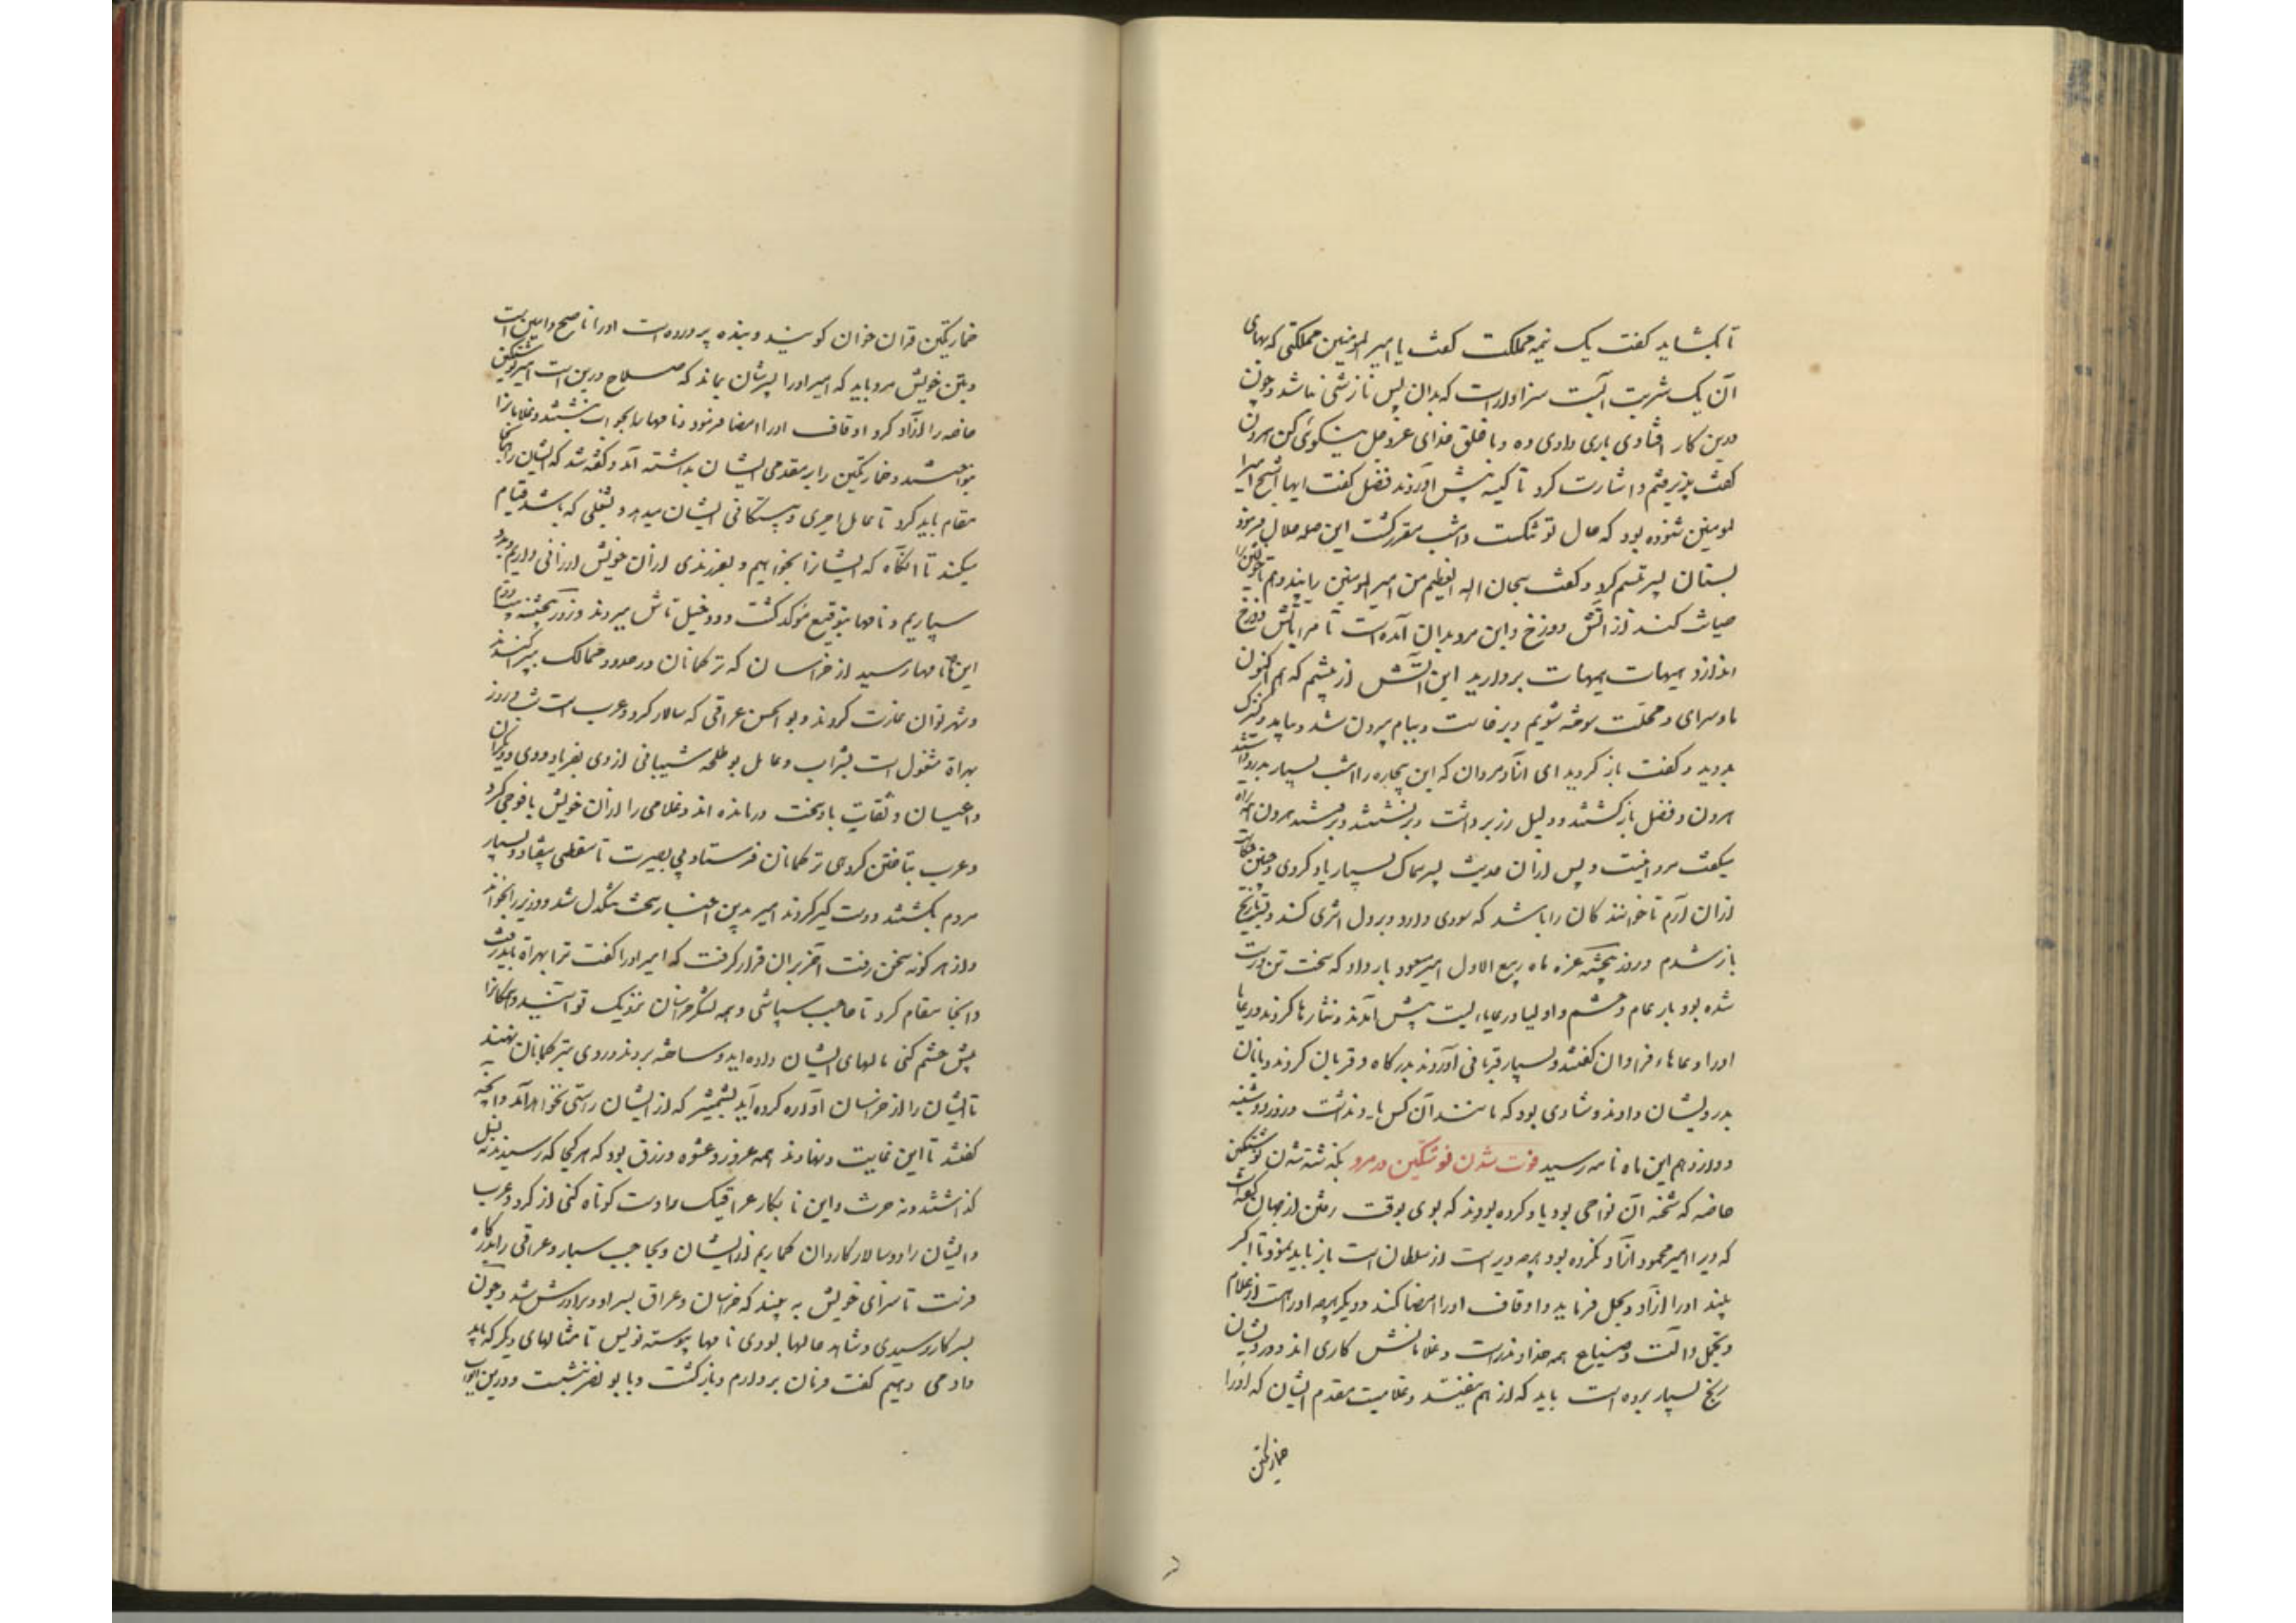 تا بگشاید گفت یک نیمه مملکت گفت یا امیر المومنین مملکتی که بهای
آن یک شربت آبست سزاوارست که بدان بس نازشی نباشد و چون
درین کار افتادی باری داد ده و با خلق خدای عز و جل نیکوئی کن هرون
گفت پذیرفتم و اشارت کرد تا کیسه پیش آوردند فضل گفت ایها الشیخ امیر ا
لمومنین شنوده بود که حال تو تنگست و امشب مقرر گشت این صله حلال فرمود
بستان پسر تبسم کرد و گفت سبحان الله العظیم من امیر المومنین را پند دهم تا خویشتن را
صیانت کند از آتش دوزخ و این مرد بدان آمده است تا مرا بآتش دوزخ
اندازد هیهات هیهات بردارید این آتش از پیشم که هم اکنون
ما و سرای و محلت سوخته شویم و برخاست و ببام بیرون شد و بیامد کنیزک
بدوید و گفت باز گردید ای آزاد مردان که این بیچاره را امشب بسیار بدرد داشتید
هرون و فضل بازگشتند و دلیل زر برداشت و برنشستند و برفتند هرون همه راه
میگفت مرد اینست و پس ازان حدیث پسر سماک بسیار یاد کردی و چنین حکایات
ازان آرم تا خوانندگان را باشد که سودی دارد و بر دل اثری کند و بسر تاریخ
باز شدم و روز پنجشنبه غره ماه ربیع الاول امیر مسعود بار داد که سخت تن درست
شده بود بار عام و حشم و اولیا و رعایاء بست پیش آمدند و نثارها کردند و رعایا
او را دعاهاء فراوان گفتند و بسیار قربانی آوردند بدرگاه و قربان کردند و با نان
بدرویشان دادند و شادی بود که مانند آن کس یاد نداشت و روز دوشنبه
دوازدهم این ماه نامه رسید فوت شدن نوشتکین در مرو بگذشته شدن نوشتکین
خاصه که شحنه آن نواحی بود یاد کرده بودند که بوی بوقت رفتن از جهان گفته است
که ویرا امیر محمود آزاد نکرده بود هر چه ویراست از سلطان است باز باید نمود تا اگر
بیند او را آزاد و بحل فرماید و اوقاف او را امضا کند و دیگر هرچه او راست از غلام
و تجمل و آلت و ضیاع همه خداوند راست و غلامانش کاری اند و در ایشان
رنج بسیار برده است باید که از هم نیفتند و غلامیست مقدم ایشان که او را
خمارتکین
خمارتکین قرآن خوان گویند و بنده پرورده است او را ناصح و امین است
و بتن خویش مرد باید که امیر او را بر ایشان بماند که صلاح درین است امیر نوشتکین
خاصه را آزاد کرد و اوقاف او را امضا فرمود و نامها را بجواب نبشتند و غلامانرا
بنواختند و خمارتکین را بر مقدمی ایشان بداشته آمد و گفته شد که ایشان را آنجا
مقام باید کرد تا عامل اجری و بیستگانی ایشان میدهد و شغلی که باشد قیام
میکند تا آنگاه که ایشانرا بخوانیم و بفرزندی ازان خویش ارزانی داریم و مرو بدو
سپاریم و نامها بتوقیع مؤکد گشت و دو خیل تاش ببردند و روز پنجشنبه بیستم
این ماه نامها رسید از خراسان که ترکمانان در حدود ممالک بپراکندند
و شهر توان غارت کردند و بو الحسن عراقی که سالار کرد و عرب است شب و روز
بهراة مشغول است بشراب و عامل بوطلحه شیبانی از وی بفریاد و وی و دیگران
و اعیان و ثقات با وسخت درمانده اند و غلامی را ازان خویش با فوجی کرد
و عرب بتاختن گروهی ترکمانان فرستاد بی بصیرت تا سقطی بیفتاد و بسیار
مردم بکشتند و دستگیر کردند امیر بدین اخبار سخت تنگدل شد و وزیر را بخواند
و از هر گونه سخن رفت آخر بران قرار گرفت که امیر او را گفت ترا بهراة باید رفت
و آنجا مقام کرد تا حاجب سباشی و همه لشکر خراسان نزدیک تو آیند و همگانرا
پیش چشم کنی مالهای ایشان داده آید و ساخته بروند و روی بترکمانان نهند
تا ایشان را از خراسان آواره کرده آید بشمشیر که از ایشان راستی نخواهد آمد و آنچه
گفتند تا این غایت و نهادند همه غرور و عشوه و زرق بود که هر کجا که رسیدند نه نسل
گذاشتند و نه حرث و این نابکار عراقیک را دست کوتاه کنی از کرد و عرب
و ایشان را دو سالار کاردان گماریم از ایشان و بحاجب سپار و عراقی را بدرگاه
فرست تا سزای خویش به بیند که خراسان و عراق بسر او و برادرش شد و چون
بسر کار رسیدی و شاهد حالها بودی نامها پیوسته نویس تا مثالهای دیگر که باید
داد می دهیم گفت فرمان بردارم و بازگشت و با بو نصر بنشست و درین ابواب